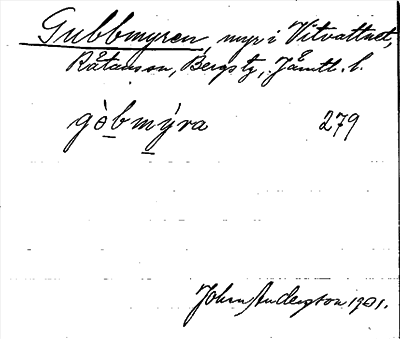 Gubbmyren, myr i Vitvattnet,
Råtanson, Bergs tg, Jämtl. l.
gòbmýra 279
John Anderzon 1901.